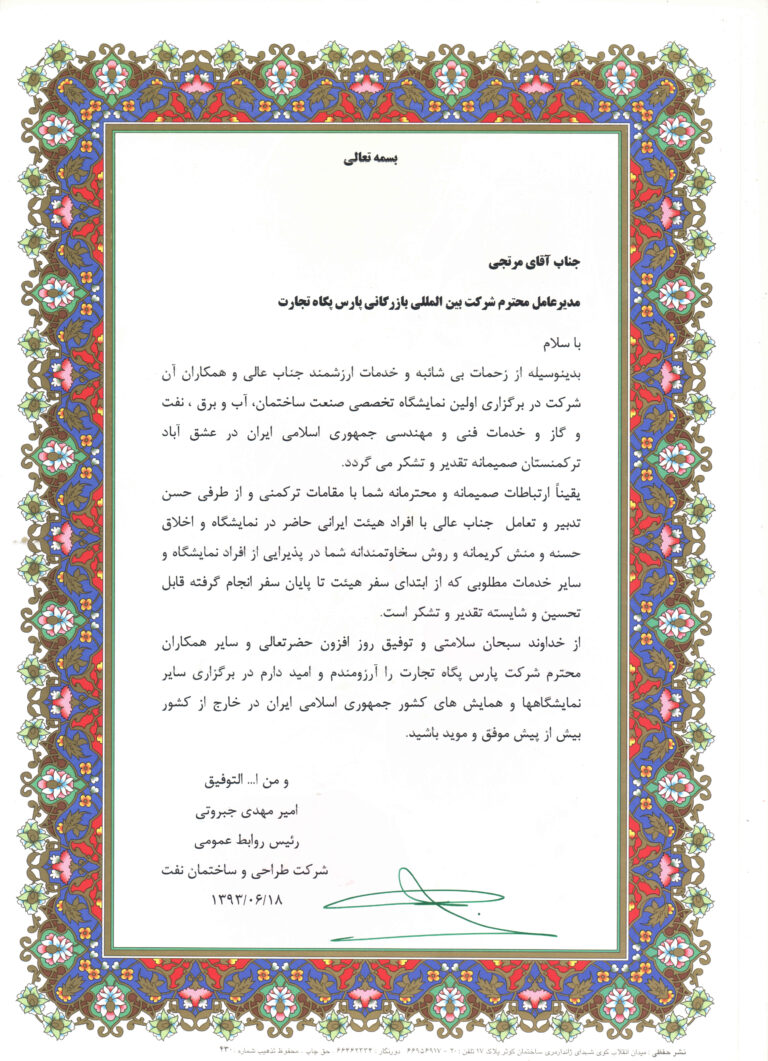 بسمه تعالی
جناب آقای مرتجی
مدیرعامل محترم شرکت بین المللی بازرگانی پارس پگاه تجارت
با سلام
بدینوسیله از زحمات بی شائبه و خدمات ارزشمند جناب عالی و همکاران آن
شرکت در برگزاری اولین نمایشگاه تخصصی صنعت ساختمان، آب و برق ، نفت
و گاز و خدمات فنی و مهندسی جمهوری اسلامی ایران در عشق آباد
ترکمنستان صمیمانه تقدیر و تشکر می گردد.
یقیناً ارتباطات صمیمانه و محترمانه شما با مقامات ترکمنی و از طرفی حسن
تدبیر و تعامل جناب عالی با افراد هیئت ایرانی حاضر در نمایشگاه و اخلاق
حسنه و منش کریمانه و روش سخاوتمندانه شما در پذیرایی از افراد نمایشگاه و
سایر خدمات مطلوبی که از ابتدای سفر هیئت تا پایان سفر انجام گرفته قابل
تحسین و شایسته تقدیر و تشکر است.
از خداوند سبحان سلامتی و توفیق روز افزون حضرتعالی و سایر همکاران
محترم شرکت پارس پگاه تجارت را آرزومندم و امید دارم در برگزاری سایر
نمایشگاهها و همایش های کشور جمهوری اسلامی ایران در خارج از کشور
بیش از پیش موفق و موید باشید.
و من ا... التوفیق
امیر مهدی جبروتی
رئیس روابط عمومی
شرکت طراحی و ساختمان نفت
۱۳۹۳/۰۶/۱۸
نشر حفظی : میدان انقلاب کوی شهدای ژاندارمری ساختمان کوثر پلاک ۱۷ تلفن : ۲۰ - ۶۶۹۵۶۹۱۷ دورنگار : ۶۶۴۶۲۲۳۴ حق چاپ محفوظ تذهیب شماره ۴۳۰